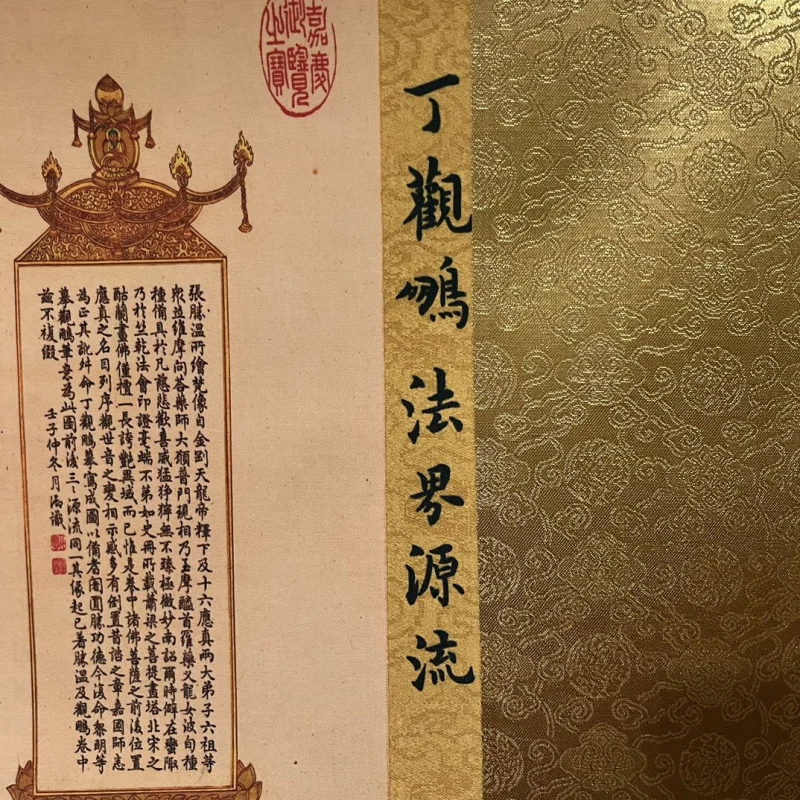 丁觀鵬法界源流
嘉慶御覽之寶
張勝溫所繪梵像自金剛天龍帝釋下及十六應真兩大弟子六祖等
眾並維摩問答藥師大願普門現相乃至摩醯首羅藥叉龍女波旬種
種備具於凡慈悲歡喜威猛猙獰無不臻極微妙南詔爾時僻在蠻陬
乃於竺乾法會印證毫端不第如史冊所載蕭梁之菩提畫塔北宋之
酤蘭畫佛僅檀一長誇艷異域而已惟是卷中諸佛菩薩之前後位置
應真之名目列序觀世音之變相示感多有倒置昔諮之章嘉國師志
為正其訛舛命丁觀鵬摹寫成圖以備耆闍圓勝功德今復命黎明等
摹觀鵬筆意為此圖前後三三源流同一其緣起已著勝溫及觀鵬卷中
茲不複綴
壬子仲冬月御識